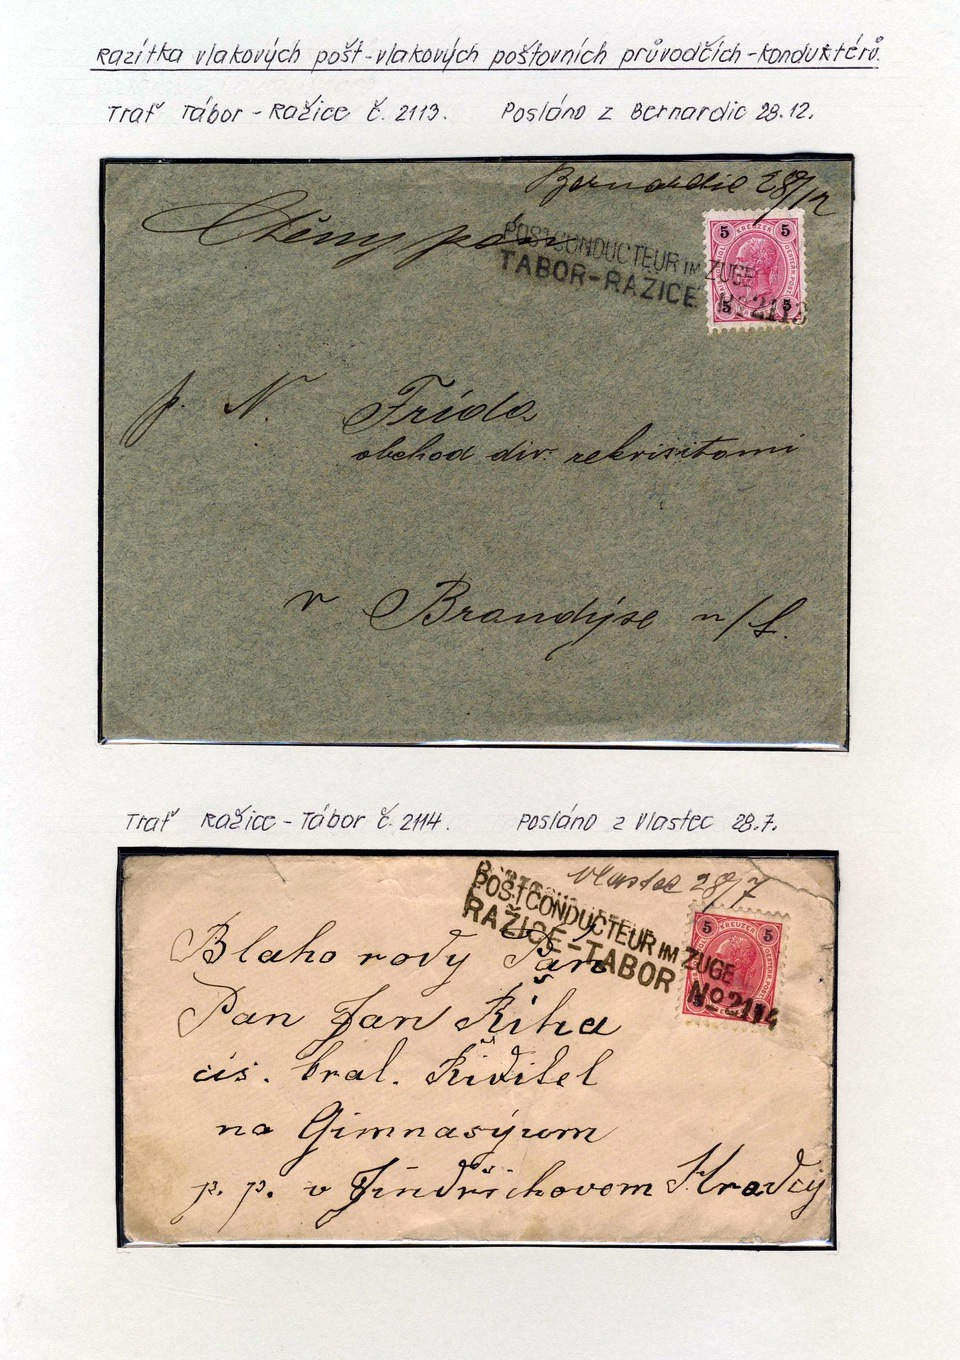 Razítka vlakových pošt-vlakových poštovních průvodčích-konduktérů.
Trať Tábor-Ražice č. 2113. Posláno z Bernardic 28.12.
Bernardic 28/12
Ctěný pán
POSTCONDUCTEUR IM ZUGE
TABOR-RAŽICE No 2113
5 KREUZER 5
5 5
p. N. Frída
obchod div. rekvisitami
v Brandýse n/L.
Trať Ražice-Tábor č. 2114. Posláno z Vlastec 28.7.
Vlastec 28/7
POSTCONDUCTEUR IM ZUGE
RAŽICE-TABOR No 2114
5 KREUZER 5
Blaho rodý Pán
Pan Jan Říha
cís. kral. Řiditel
na Gimnasýum
p. p. v Jindřichovom Hradcy